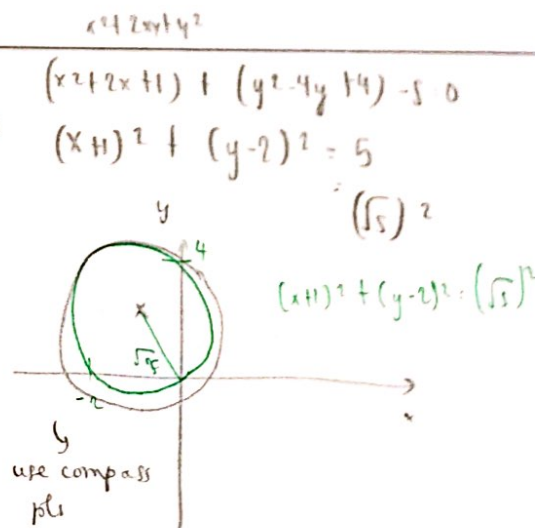 x²+2xx+y²
(x²+2x+1) + (y²-4y+4) -5=0
(x+1)² + (y-2)² = 5
= (√5)²
y
4
(x+1)² + (y-2)² = (√5)²
x
√5
-2
x
use compass
pls